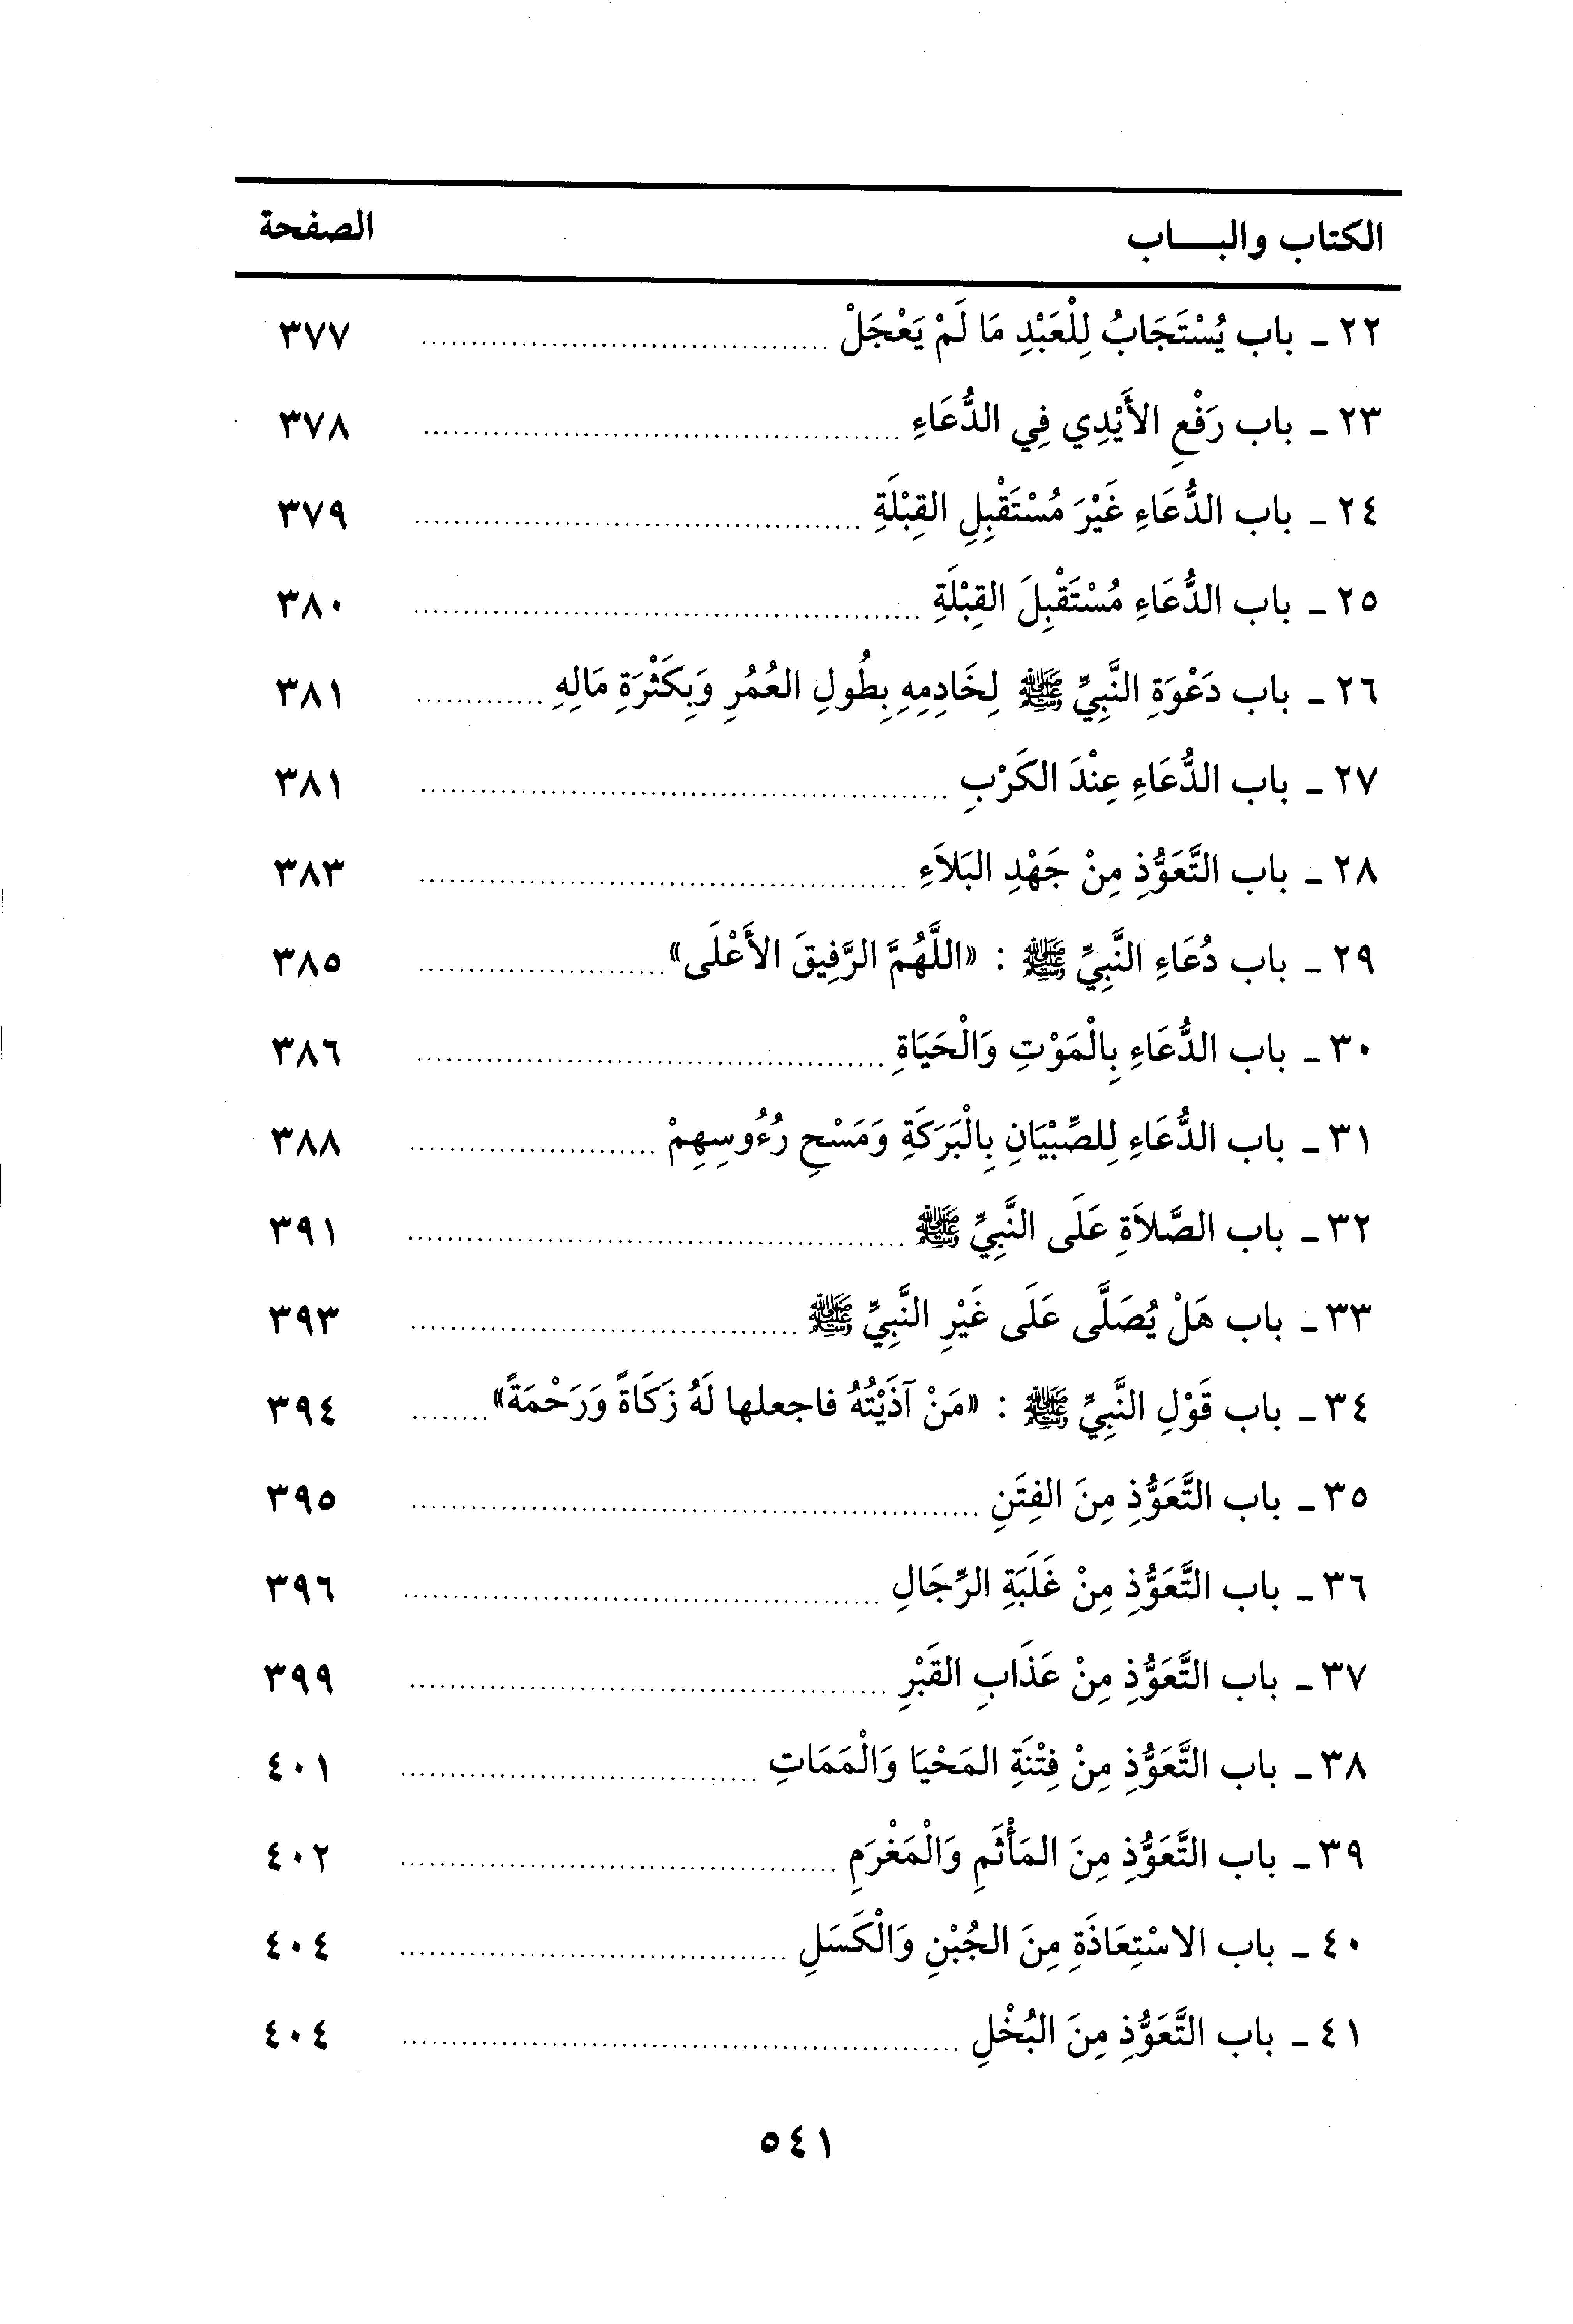 الكتاب والبـــاب الصفحة
٢٢ ـ باب يُسْتَجَابُ لِلْعَبْدِ مَا لَمْ يَعْجَلْ ........ ٣٧٧
٢٣ ـ باب رَفْعِ الأَيْدِي فِي الدُّعَاءِ ........ ٣٧٨
٢٤ ـ باب الدُّعَاءِ غَيْرَ مُسْتَقْبِلِ القِبْلَةِ ........ ٣٧٩
٢٥ ـ باب الدُّعَاءِ مُسْتَقْبِلَ القِبْلَةِ ........ ٣٨٠
٢٦ ـ باب دَعْوَةِ النَّبِيِّ ﷺ لِخَادِمِهِ بِطُولِ العُمُرِ وَبِكَثْرَةِ مَالِهِ ........ ٣٨١
٢٧ ـ باب الدُّعَاءِ عِنْدَ الكَرْبِ ........ ٣٨١
٢٨ ـ باب التَّعَوُّذِ مِنْ جَهْدِ البَلاَءِ ........ ٣٨٣
٢٩ ـ باب دُعَاءِ النَّبِيِّ ﷺ : «اللَّهُمَّ الرَّفِيقَ الأَعْلَى» ........ ٣٨٥
٣٠ ـ باب الدُّعَاءِ بِالْمَوْتِ وَالْحَيَاةِ ........ ٣٨٦
٣١ ـ باب الدُّعَاءِ لِلصِّبْيَانِ بِالْبَرَكَةِ وَمَسْحِ رُءُوسِهِمْ ........ ٣٨٨
٣٢ ـ باب الصَّلاَةِ عَلَى النَّبِيِّ ﷺ ........ ٣٩١
٣٣ ـ باب هَلْ يُصَلَّى عَلَى غَيْرِ النَّبِيِّ ﷺ ........ ٣٩٣
٣٤ ـ باب قَوْلِ النَّبِيِّ ﷺ : «مَنْ آذَيْتُهُ فاجعلها لَهُ زَكَاةً وَرَحْمَةً» ........ ٣٩٤
٣٥ ـ باب التَّعَوُّذِ مِنَ الفِتَنِ ........ ٣٩٥
٣٦ ـ باب التَّعَوُّذِ مِنْ غَلَبَةِ الرِّجَالِ ........ ٣٩٦
٣٧ ـ باب التَّعَوُّذِ مِنْ عَذَابِ القَبْرِ ........ ٣٩٩
٣٨ ـ باب التَّعَوُّذِ مِنْ فِتْنَةِ المَحْيَا وَالْمَمَاتِ ........ ٤٠١
٣٩ ـ باب التَّعَوُّذِ مِنَ المَأْثَمِ وَالْمَغْرَمِ ........ ٤٠٢
٤٠ ـ باب الاسْتِعَاذَةِ مِنَ الجُبْنِ وَالْكَسَلِ ........ ٤٠٤
٤١ ـ باب التَّعَوُّذِ مِنَ البُخْلِ ........ ٤٠٤
٥٤١